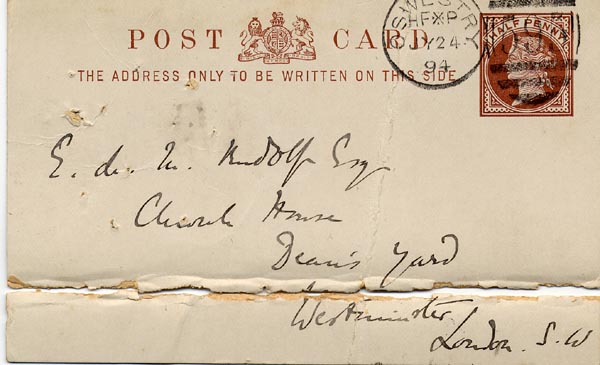 POST CARD
THE ADDRESS ONLY TO BE WRITTEN ON THIS SIDE
OSWESTRY
HF*P
JY 24
94
HALF PENNY
E. de M. Rudolf Esq
Church House
Dean's Yard
Westminster
London. S.W